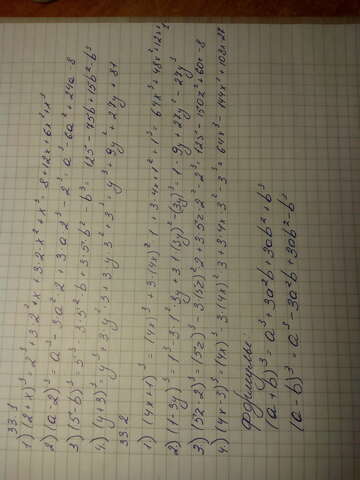 33.1
1) (2+x)³ = 2³+3·2²·x+3·2·x²+x³ = 8+12x+6x²+x³
2) (a-2)³ = a³-3a²·2+3·a·2²-2³ = a³-6a²+24a-8
3) (5-b)³ = 5³-3·5²·b+3·5·b²-b³ = 125-75b+15b²-b³
4) (y+3)³ = y³+3·y²·3+3·y·3²+3³ = y³+9y²+27y+81
33.2
1) (4x+1)³ = (4x)³+3·(4x)²·1+3·4x·1²+1³ = 64x³+48x²+12x+1
2) (1-3y)³ = 1³-3·1²·3y+3·1·(3y)²-(3y)³ = 1-9y+27y²-27y³
3) (5z-2)³ = (5z)³-3·(5z)²·2+3·5z·2²-2³ = 125-150z²+60z-8
4) (4x-3)³ = (4x)³-3·(4x)²·3+3·4x·3²-3³ = 64x³-144x²+108x-27
Формулы:
(a+b)³ = a³+3a²b+3ab²+b³
(a-b)³ = a³-3a²b+3ab²-b³